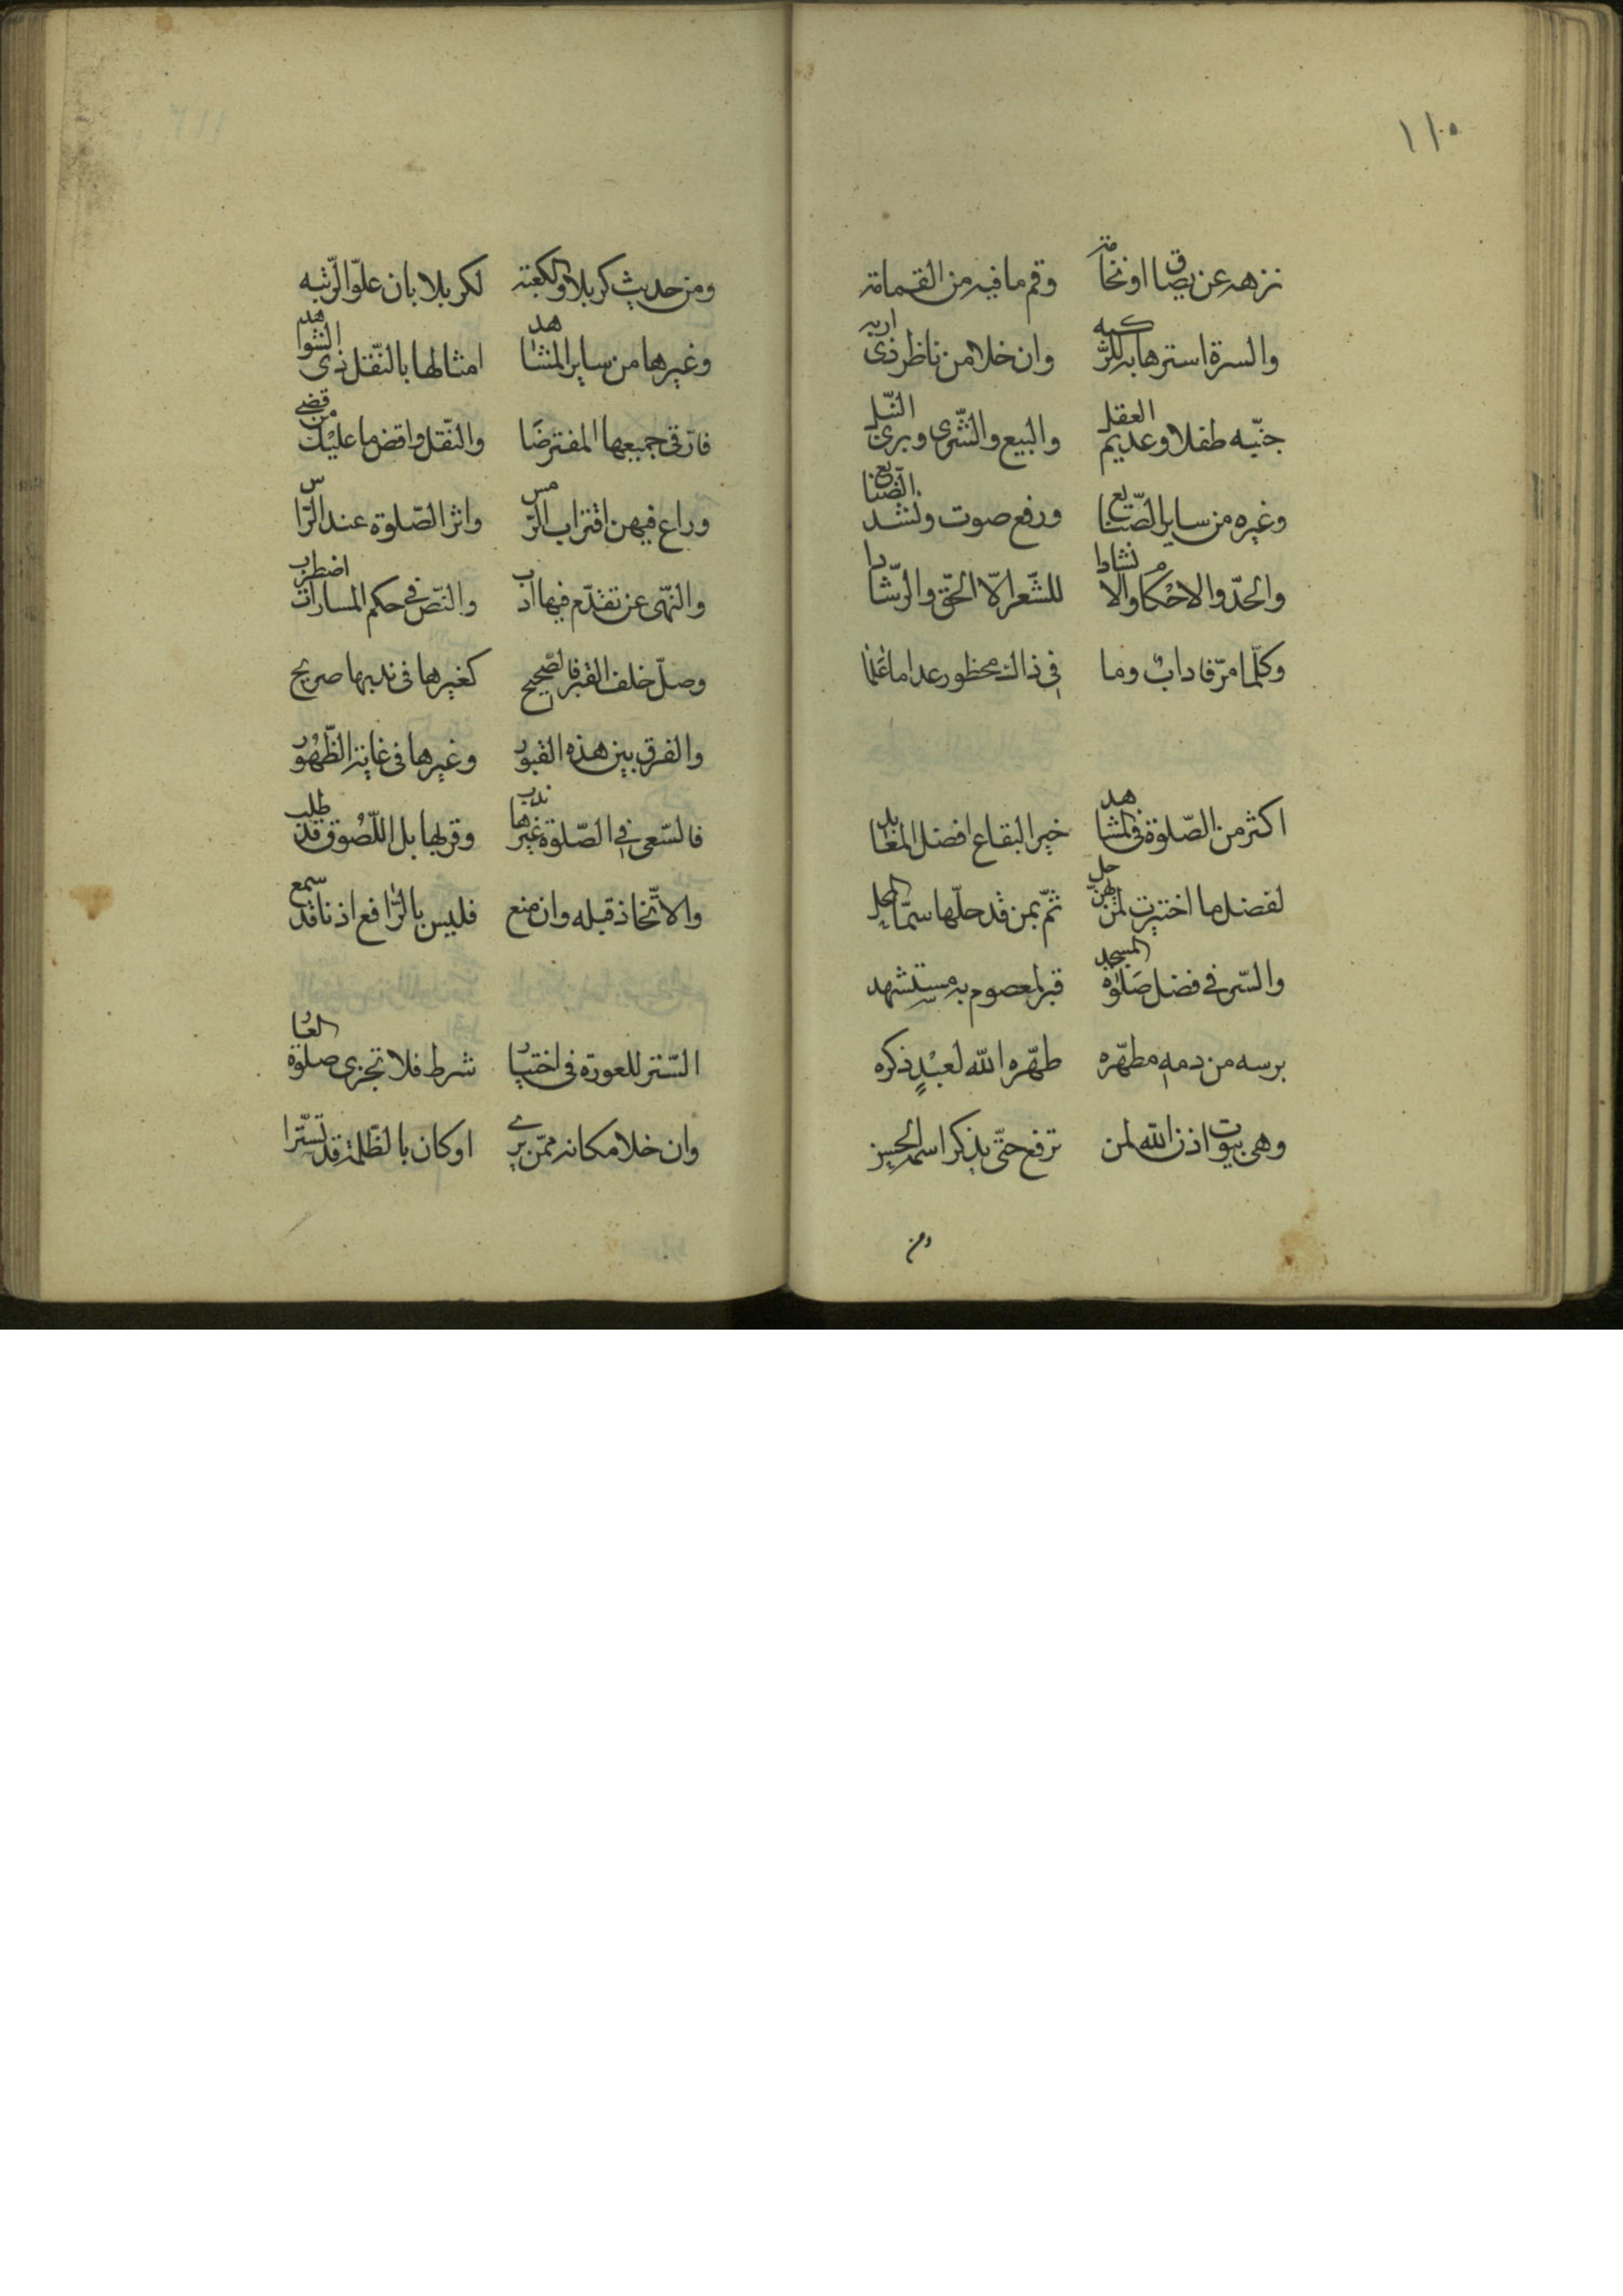 ١١٥
نزهه عن بصاق او نخامة وقم ما فيه من القمامة
والسرة استرها به للركبه وان خلا من ناظر ذى اربه
جنّبه طفلا وعديم العقل والبيع والشّرى وبرى النّبل
وغيره من ساير الصّنايع ورفع صوت ونشد الضّايع
والحدّ والاحكام والانشادا للشّعر الّا الحقّ والرّشادا
وكلّما مرّ فاداب وما فى ذاك محظور عدا ما علما
اكثر من الصّلوة فى المشاهد خير البقاع افضل المعابد
لفضلها اختيرت لمن بهنّ حل ثمّ بمن قد حلّها سما المحل
والسّر فى فضل صلوة المسجد قبر لمعصوم به مستشهد
برسه من دمه مطهّره طهّره الله لعبد ذكره
وهى بيوت اذن الله لمن ترفع حتّى يذكر اسمه الحسن
ومن
ومن حديث كربلا والكعبة لكربلا بان علوّ الرّتبه
وغيرها من ساير المشاهد امثالها بالنّقل ذى الشّواهد
فارّق جميعها المفترضا والنّفل واقض ما عليك من قضى
وراع فيهن اقتراب الرّمس واثر الصّلوة عند الرّاس
والنّهى عن تقدّم فيها ادب والنّص فى حكم المساوات اضطرب
وصلّ خلف القبر فالصّحيح كغيرها فى ندبها صريح
والفرق بين هذه القبور وغيرها فى غاية الظّهور
فالسّعى فى الصّلوة غيرها ندب وقربها بل اللّصوق قد طلب
والاتّخاذ قبله وان منع فليس بالرّافع اذنا قد سمع
السّتر للعورة فى اختيار شرط فلا تجزى صلوة العار
وان خلا مكانه ممّن يرى او كان بالظّلمة قد تستّرا